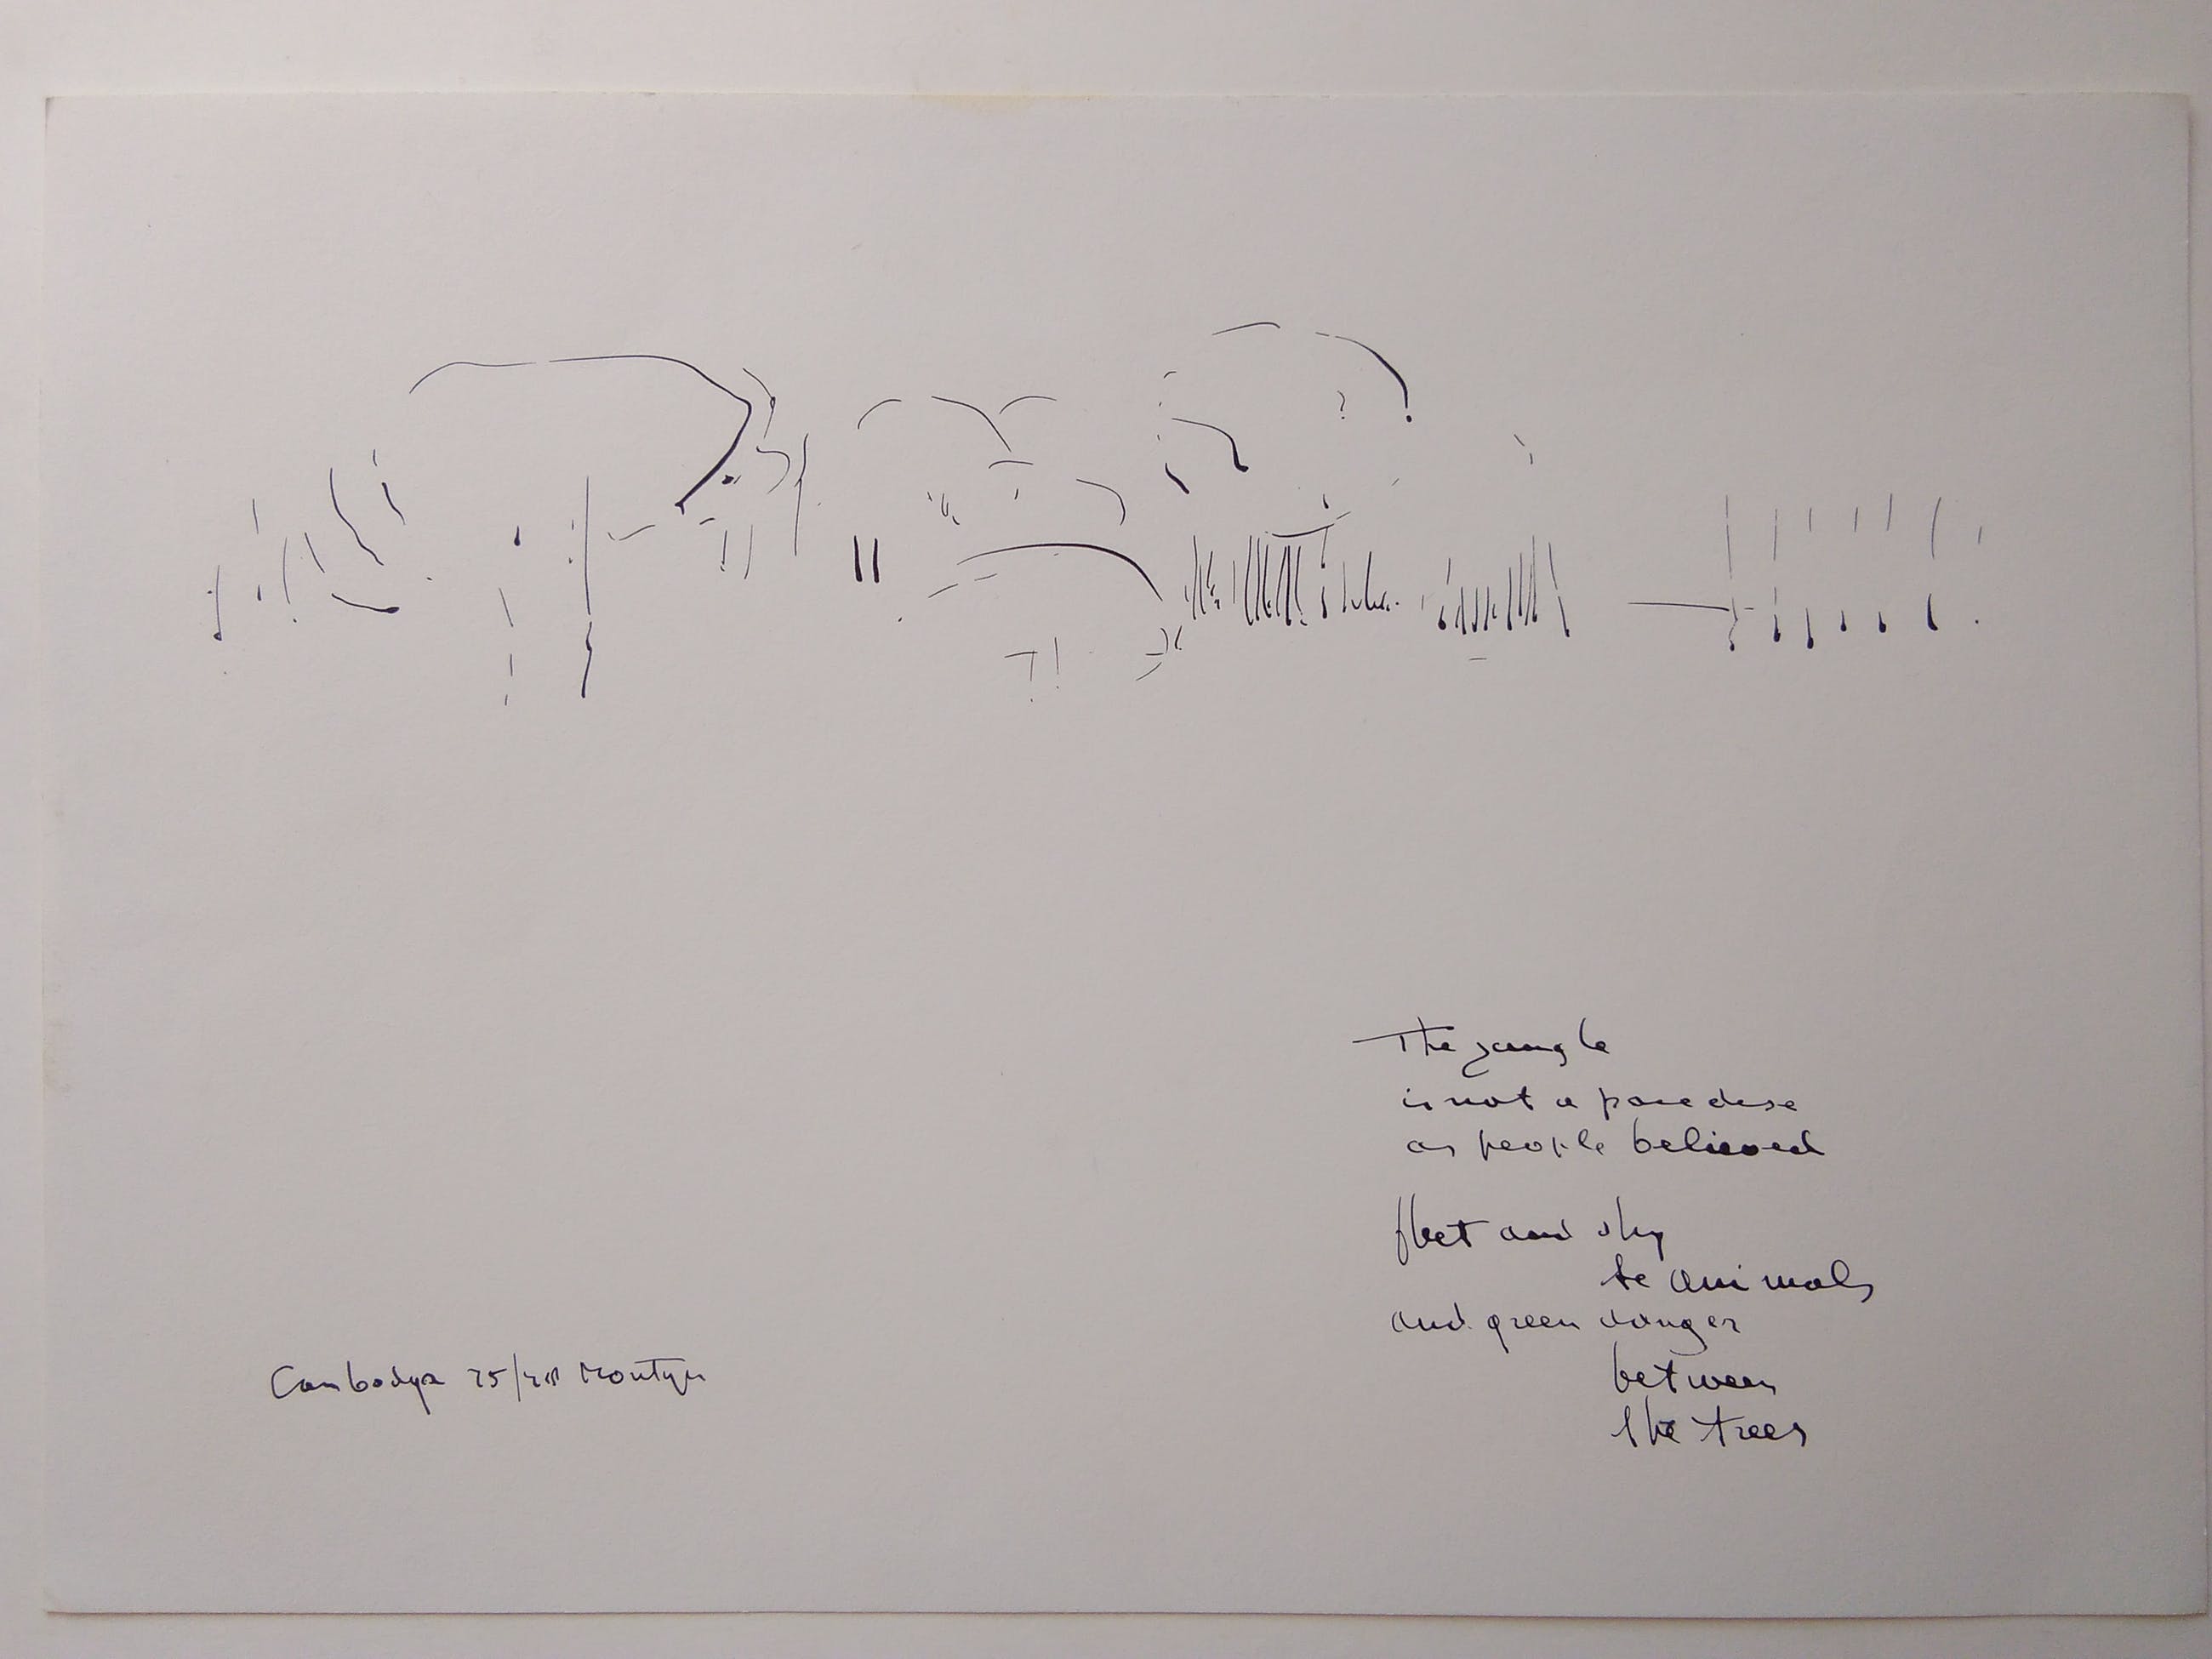 The jungle
is not a paradise
as people believed
fleet and shy
te animals
and green danger
between
the trees
Cambodya Montyn